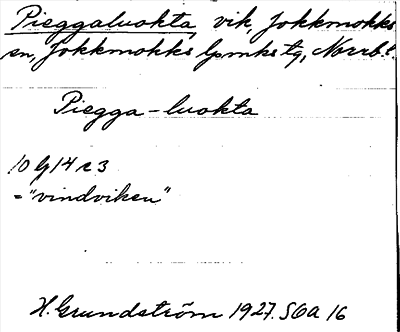 Pieggaluokta, vik, Jokkmokks
sn, Jokkmokks lpmks tg, Norrb.l.
Piegga-luokta
10 G 14 c 3
= "vindviken"
H. Grundström 1927. SOA 16